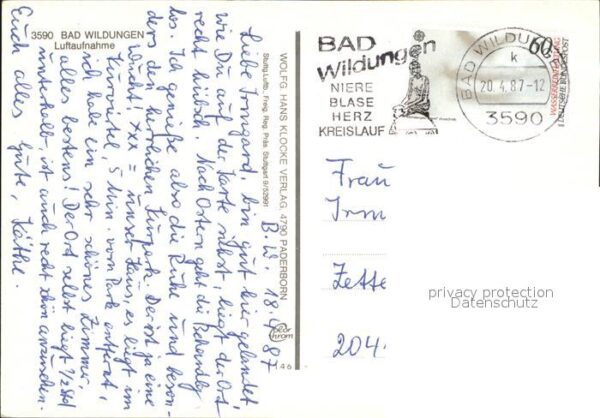 3590 BAD WILDUNGEN
Luftaufnahme
B.W. 18.4.87
Liebe Irmgard, bin gut hier gelandet,
wie Du auf der Karte siehst, liegt der Ort
recht hübsch. Nach Ostern geht die Behandlg.
los. Ich genieße also die Ruhe und beson-
ders den herrlichen Kurpark. Der ist ja eine
Wucht! xxx = unser Haus, es liegt im
Kurviertel, 5 Min. vom Park entfernt,
ich habe ein sehr schönes Zimmer,
alles bestens! Der Ort selbst liegt 1/2 Std
unterhalb, ist auch recht schön anzusehen.
Euch alles Gute, Käthe.
WOLFG. HANS KLOCKE VERLAG, 4790 PADERBORN
Stuttg. Luftb., Freig. Reg. Präs. Stuttgart 9/52991
chrom
146
BAD
Wildungen
NIERE
BLASE
HERZ
KREISLAUF
BAD WILDUNGEN
k
20.4.87-12
3590
60
DEUTSCHE BUNDESPOST
Frau
Irm
Zette
204
privacy protection
Datenschutz